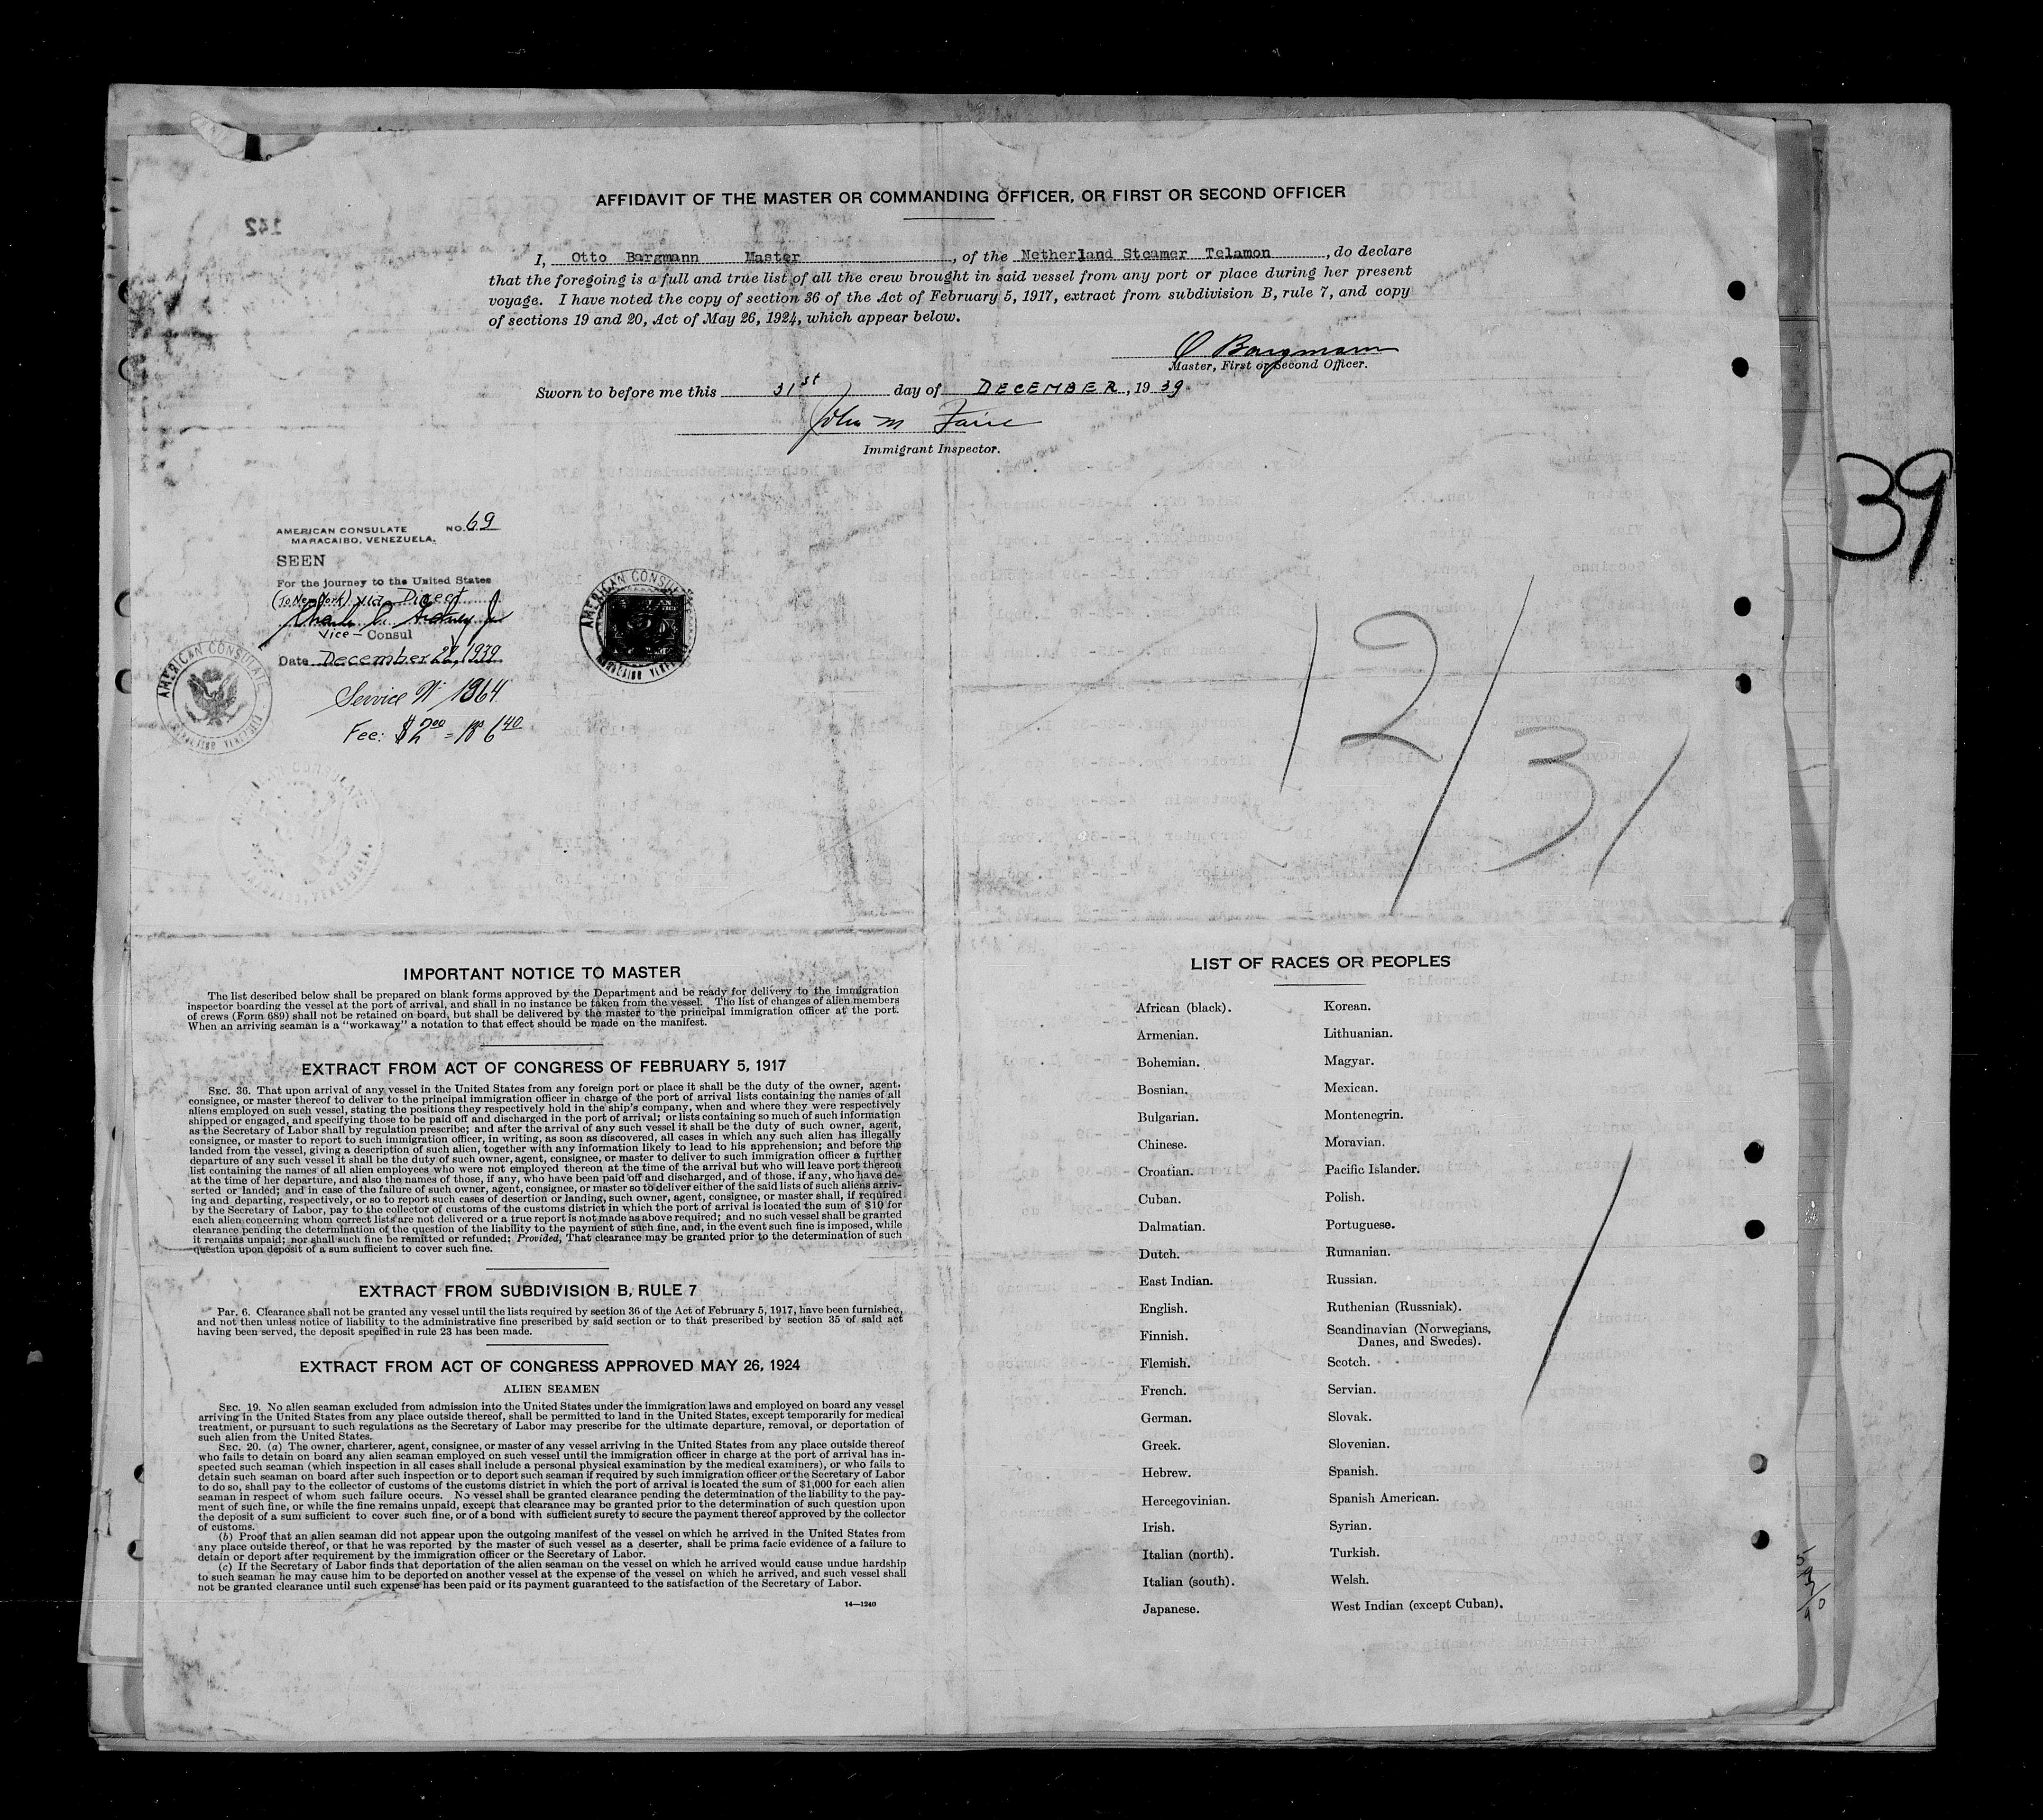 AFFIDAVIT OF THE MASTER OR COMMANDING OFFICER, OR FIRST OR SECOND OFFICER
142
I, Otto Bargmann Master, of the Netherland Steamer Telamon, do declare
that the foregoing is a full and true list of all the crew brought in said vessel from any port or place during her present
voyage. I have noted the copy of section 36 of the Act of February 5, 1917, extract from subdivision B, rule 7, and copy
of sections 19 and 20, Act of May 26, 1924, which appear below.
O Bargmann
Master, First or Second Officer.
Sworn to before me this 31st day of DECEMBER, 1939
John M
Immigrant Inspector.
39
AMERICAN CONSULATE NO. 69
MARACAIBO, VENEZUELA.
SEEN
For the journey to the United States
(To New York) via Direct
Vice-Consul
Date December 28, 1939
Service No 1964
Fee: $2.00 = Bs 6.40
AMERICAN CONSULATE
MARACAIBO VENEZUELA
12/31
IMPORTANT NOTICE TO MASTER
The list described below shall be prepared on blank forms approved by the Department and be ready for delivery to the immigration
inspector boarding the vessel at the port of arrival, and shall in no instance be taken from the vessel. The list of changes of alien members
of crews (Form 689) shall not be retained on board, but shall be delivered by the master to the principal immigration officer at the port.
When an arriving seaman is a "workaway" a notation to that effect should be made on the manifest.
EXTRACT FROM ACT OF CONGRESS OF FEBRUARY 5, 1917
SEC. 36. That upon arrival of any vessel in the United States from any foreign port or place it shall be the duty of the owner, agent,
consignee, or master thereof to deliver to the principal immigration officer in charge of the port of arrival lists containing the names of all
aliens employed on such vessel, stating the positions they respectively hold in the ship's company, when and where they were respectively
shipped or engaged, and specifying those to be paid off and discharged in the port of arrival; or lists containing so much of such information
as the Secretary of Labor shall by regulation prescribe; and after the arrival of any such vessel it shall be the duty of such owner, agent,
consignee, or master to report to such immigration officer, in writing, as soon as discovered, all cases in which any such alien has illegally
landed from the vessel, giving a description of such alien, together with any information likely to lead to his apprehension; and before the
departure of any such vessel it shall be the duty of such owner, agent, consignee, or master to deliver to such immigration officer a further
list containing the names of all alien employees who were not employed thereon at the time of the arrival but who will leave port thereon
at the time of her departure, and also the names of those, if any, who have been paid off and discharged, and of those, if any, who have de-
serted or landed; and in case of the failure of such owner, agent, consignee, or master so to deliver either of the said lists of such aliens arriv-
ing and departing, respectively, or so to report such cases of desertion or landing, such owner, agent, consignee, or master shall, if required
by the Secretary of Labor, pay to the collector of customs of the customs district in which the port of arrival is located the sum of $10 for
each alien concerning whom correct lists are not delivered or a true report is not made as above required; and no such vessel shall be granted
clearance pending the determination of the question of the liability to the payment of such fine, and, in the event such fine is imposed, while
it remains unpaid; nor shall such fine be remitted or refunded: Provided, That clearance may be granted prior to the determination of such
question upon deposit of a sum sufficient to cover such fine.
EXTRACT FROM SUBDIVISION B, RULE 7
Par. 6. Clearance shall not be granted any vessel until the lists required by section 36 of the Act of February 5, 1917, have been furnished,
and not then unless notice of liability to the administrative fine prescribed by said section or to that prescribed by section 35 of said act
having been served, the deposit specified in rule 23 has been made.
EXTRACT FROM ACT OF CONGRESS APPROVED MAY 26, 1924
ALIEN SEAMEN
SEC. 19. No alien seaman excluded from admission into the United States under the immigration laws and employed on board any vessel
arriving in the United States from any place outside thereof, shall be permitted to land in the United States, except temporarily for medical
treatment, or pursuant to such regulations as the Secretary of Labor may prescribe for the ultimate departure, removal, or deportation of
such alien from the United States.
SEC. 20. (a) The owner, charterer, agent, consignee, or master of any vessel arriving in the United States from any place outside thereof
who fails to detain on board any alien seaman employed on such vessel until the immigration officer in charge at the port of arrival has in-
spected such seaman (which inspection in all cases shall include a personal physical examination by the medical examiners), or who fails to
detain such seaman on board after such inspection or to deport such seaman if required by such immigration officer or the Secretary of Labor
to do so, shall pay to the collector of customs of the customs district in which the port of arrival is located the sum of $1,000 for each alien
seaman in respect of whom such failure occurs. No vessel shall be granted clearance pending the determination of the liability to the pay-
ment of such fine, or while the fine remains unpaid, except that clearance may be granted prior to the determination of such question upon
the deposit of a sum sufficient to cover such fine, or of a bond with sufficient surety to secure the payment thereof approved by the collector
of customs.
(b) Proof that an alien seaman did not appear upon the outgoing manifest of the vessel on which he arrived in the United States from
any place outside thereof, or that he was reported by the master of such vessel as a deserter, shall be prima facie evidence of a failure to
detain or deport after requirement by the immigration officer or the Secretary of Labor.
(c) If the Secretary of Labor finds that deportation of the alien seaman on the vessel on which he arrived would cause undue hardship
to such seaman he may cause him to be deported on another vessel at the expense of the vessel on which he arrived, and such vessel shall
not be granted clearance until such expense has been paid or its payment guaranteed to the satisfaction of the Secretary of Labor.
14—1240
LIST OF RACES OR PEOPLES
African (black).
Armenian.
Bohemian.
Bosnian.
Bulgarian.
Chinese.
Croatian.
Cuban.
Dalmatian.
Dutch.
East Indian.
English.
Finnish.
Flemish.
French.
German.
Greek.
Hebrew.
Hercegovinian.
Irish.
Italian (north).
Italian (south).
Japanese.
Korean.
Lithuanian.
Magyar.
Mexican.
Montenegrin.
Moravian.
Pacific Islander.
Polish.
Portuguese.
Rumanian.
Russian.
Ruthenian (Russniak).
Scandinavian (Norwegians,
Danes, and Swedes).
Scotch.
Servian.
Slovak.
Slovenian.
Spanish.
Spanish American.
Syrian.
Turkish.
Welsh.
West Indian (except Cuban).